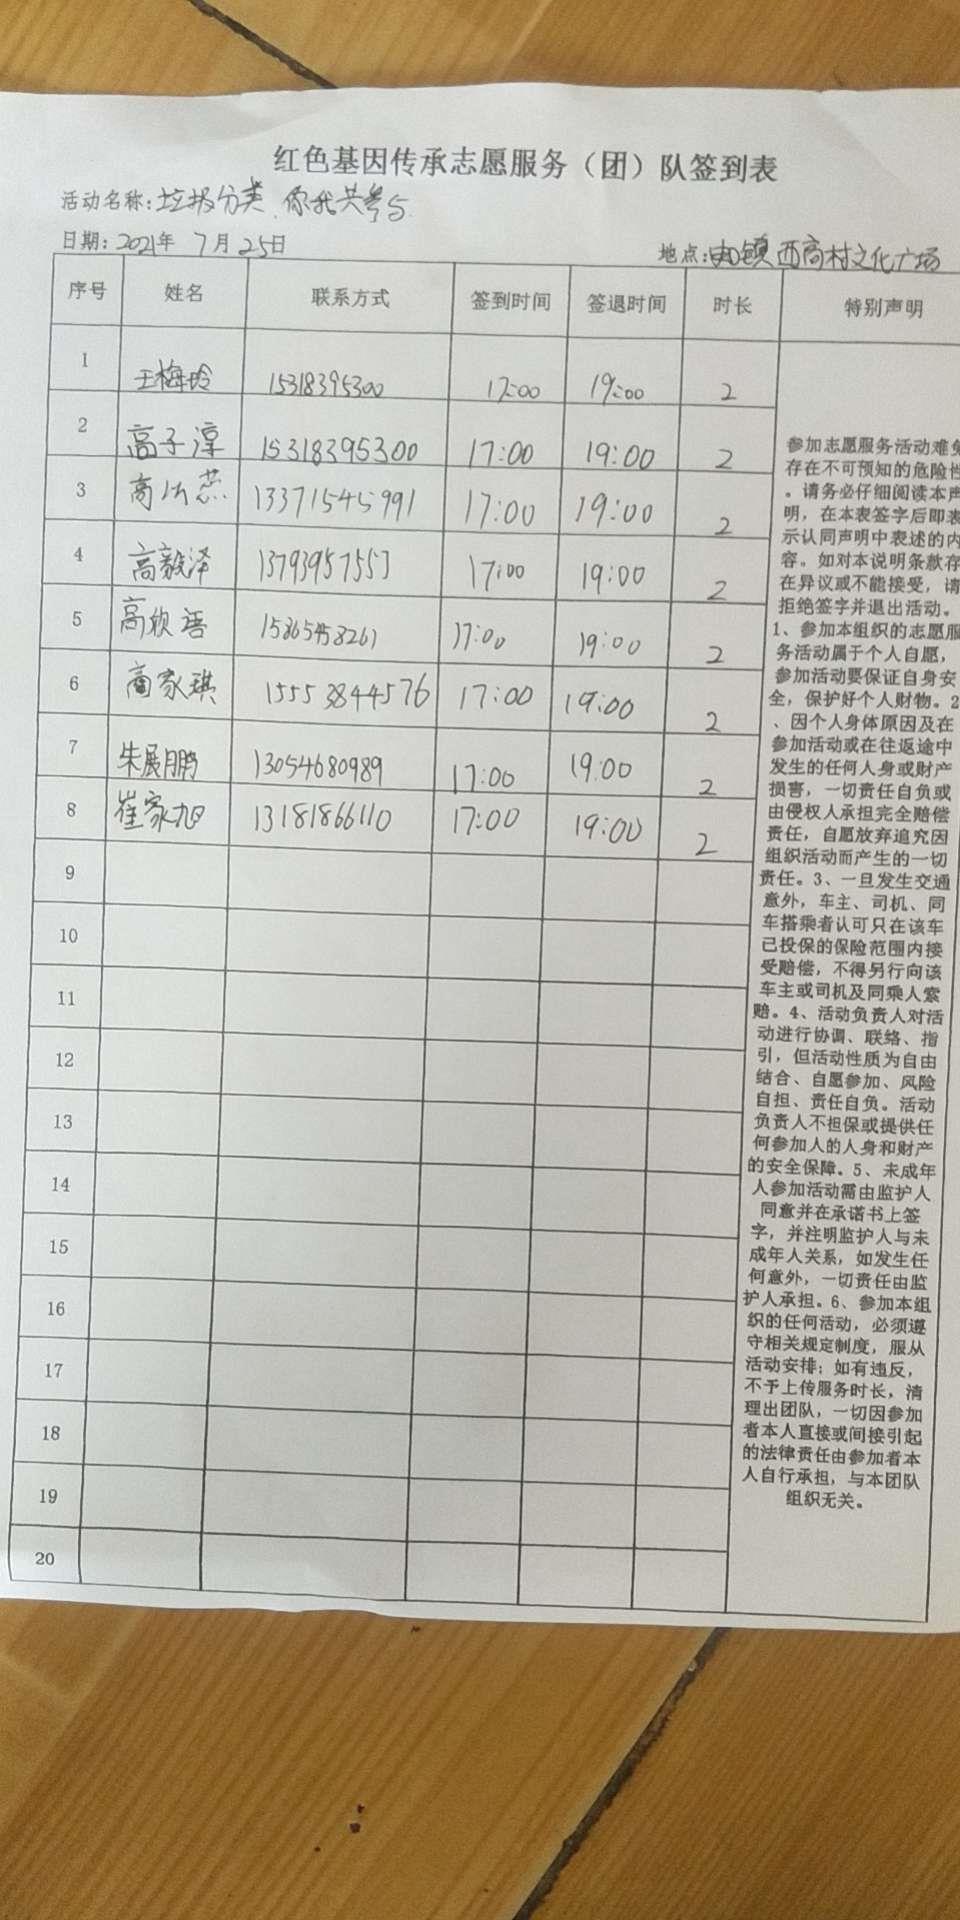 红色基因传承志愿服务（团）队签到表
活动名称:垃圾分类、你我共参与
日期:2021年 7月25日 地点: 镇西高村文化广场
序号 姓名 联系方式 签到时间 签退时间 时长 特别声明
1 王梅玲 15318395300 17:00 19:00 2
2 高子淳 15318395300 17:00 19:00 2
3 高 蕊 13371545991 17:00 19:00 2
4 高毅泽 13793957553 17:00 19:00 2
5 高欣语 15865458261 17:00 19:00 2
6 高家琪 15553844576 17:00 19:00 2
7 朱展鹏 13054680989 17:00 19:00 2
8 崔家旭 13181866110 17:00 19:00 2
9
10
11
12
13
14
15
16
17
18
19
20
参加志愿服务活动难免
存在不可预知的危险性
。请务必仔细阅读本声
明，在本表签字后即表
示认同声明中表述的内
容。如对本说明条款存
在异议或不能接受，请
拒绝签字并退出活动。
1、参加本组织的志愿服
务活动属于个人自愿，
参加活动要保证自身安
全，保护好个人财物。2
、因个人身体原因及在
参加活动或在往返途中
发生的任何人身或财产
损害，一切责任自负或
由侵权人承担完全赔偿
责任，自愿放弃追究因
组织活动而产生的一切
责任。3、一旦发生交通
意外，车主、司机、同
车搭乘者认可只在该车
已投保的保险范围内接
受赔偿，不得另行向该
车主或司机及同乘人索
赔。4、活动负责人对活
动进行协调、联络、指
引，但活动性质为自由
结合、自愿参加、风险
自担、责任自负。活动
负责人不担保或提供任
何参加人的人身和财产
的安全保障。5、未成年
人参加活动需由监护人
同意并在承诺书上签
字，并注明监护人与未
成年人关系，如发生任
何意外，一切责任由监
护人承担。6、参加本组
织的任何活动，必须遵
守相关规定制度，服从
活动安排；如有违反，
不予上传服务时长，清
理出团队，一切因参加
者本人直接或间接引起
的法律责任由参加者本
人自行承担，与本团队
组织无关。